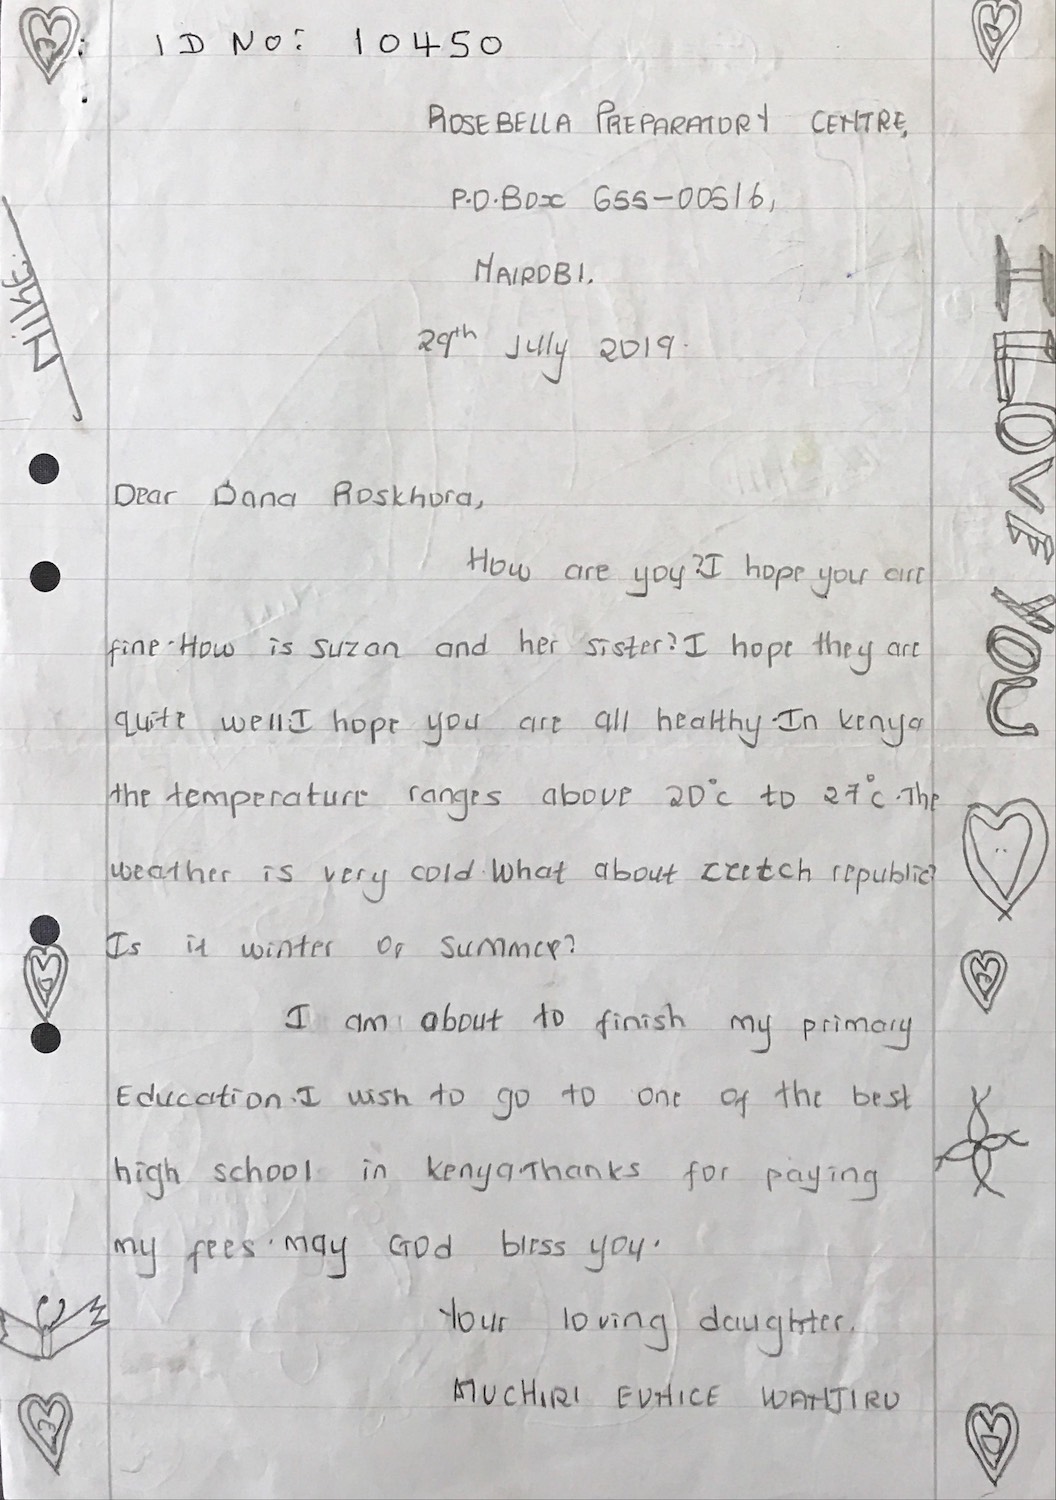 ID No: 10450
ROSEBELLA PREPARATORY CENTRE,
P.O.Box 655-00516,
NAIROBI.
29th July 2019.
Dear Dana Roskhora,
How are you? I hope your are
fine. How is suzan and her sister? I hope they are
quite well. I hope you are all healthy. In kenya
the temperature ranges above 20°c to 27°c. The
weather is very cold. What about czetch republic?
Is it winter or summer?
I am about to finish my primary
Education. I wish to go to one of the best
high school in kenya. Thanks for paying
my fees. may God bless you.
Your loving daughter.
MUCHIRI EUNICE WANJIRU
NIKE
I LOVE YOU